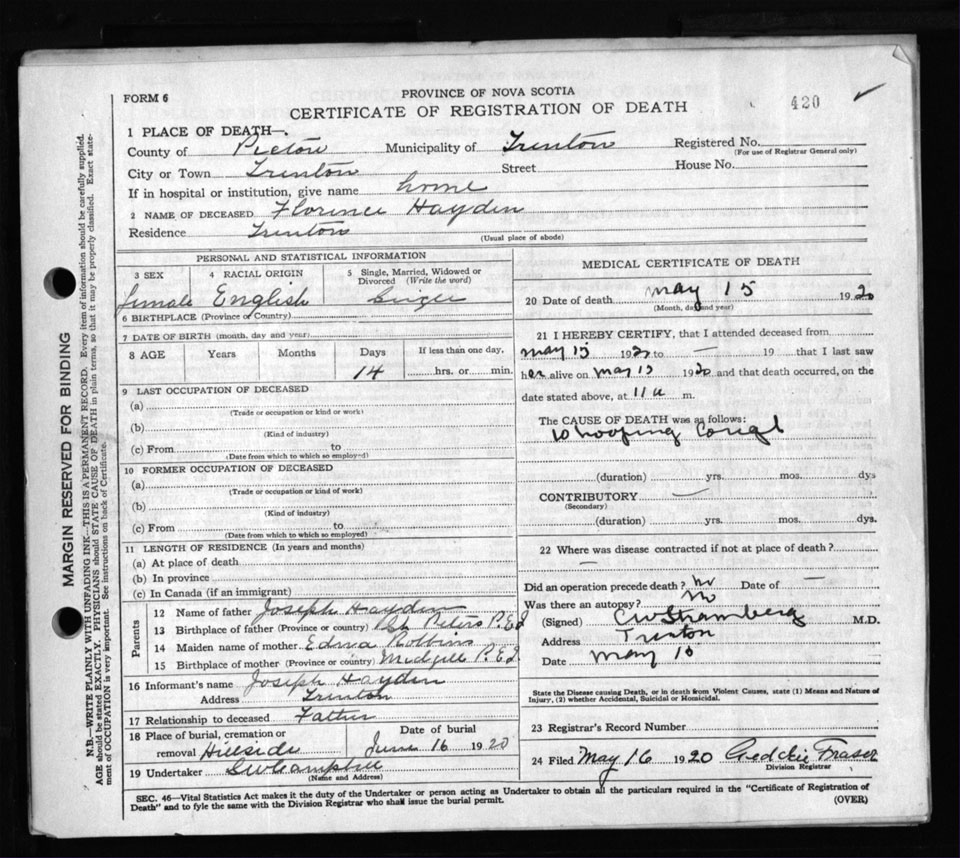 FORM 6
PROVINCE OF NOVA SCOTIA
CERTIFICATE OF REGISTRATION OF DEATH
420
1 PLACE OF DEATH—.
County of Pictou Municipality of Trenton Registered No.
(For use of Registrar General only)
City or Town Trenton Street House No.
If in hospital or institution, give name home
2 NAME OF DECEASED Florence Hayden
Residence Trenton
(Usual place of abode)
PERSONAL AND STATISTICAL INFORMATION
3 SEX 4 RACIAL ORIGIN 5 Single, Married, Widowed or Divorced (Write the word)
female English
6 BIRTHPLACE (Province or Country)
7 DATE OF BIRTH (month, day and year)
8 AGE Years Months Days If less than one day,
14 hrs. or min.
9 LAST OCCUPATION OF DECEASED
(a)
(Trade or occupation or kind or work)
(b)
(Kind of industry)
(c) From to
(Date from which to which so employed)
10 FORMER OCCUPATION OF DECEASED
(a)
(Trade or occupation or kind of work)
(b)
(Kind of industry)
(c) From to
(Date from which to which so employed)
11 LENGTH OF RESIDENCE (In years and months)
(a) At place of death
(b) In province
(c) In Canada (if an immigrant)
Parents
12 Name of father Joseph Hayden
13 Birthplace of father (Province or country) St Peters P.E.I
14 Maiden name of mother Edna Robbins
15 Birthplace of mother (Province or country) Midgell P.E.I
16 Informant's name Joseph Hayden
Address Trenton
17 Relationship to deceased Father
18 Place of burial, cremation or removal Hillside Date of burial
June 16 1920
19 Undertaker GW Campbell
(Name and Address)
MEDICAL CERTIFICATE OF DEATH
20 Date of death May 15 1920
(Month, day and year)
21 I HEREBY CERTIFY, that I attended deceased from
May 15 1920 to — 19 that I last saw
her alive on May 15 1920 and that death occurred, on the
date stated above, at 11 a m.
The CAUSE OF DEATH was as follows:
Whooping Cough
(duration) yrs. mos. dys
CONTRIBUTORY —
(Secondary)
(duration) yrs. mos. dys.
22 Where was disease contracted if not at place of death?
—
Did an operation precede death? No Date of —
Was there an autopsy? No
(Signed) CW Stramberg M.D.
Address Trenton
Date May
State the Disease causing Death, or in death from Violent Causes, state (1) Means and Nature of
Injury, (2) whether Accidental, Suicidal or Homicidal.
23 Registrar's Record Number
24 Filed May 16 1920 Fraser
Division Registrar
SEC. 46—Vital Statistics Act makes it the duty of the Undertaker or person acting as Undertaker to obtain all the particulars required in the "Certificate of Registration of
Death" and to fyle the same with the Division Registrar who shall issue the burial permit.
(OVER)
MARGIN RESERVED FOR BINDING
N.B.—WRITE PLAINLY WITH UNFADING INK—THIS IS A PERMANENT RECORD. Every item of information should be carefully supplied.
AGE should be stated EXACTLY. PHYSICIANS should STATE CAUSE OF DEATH in plain terms, so that it may be properly classified. Exact state-
ment of OCCUPATION is very important. See instructions on back of Certificate.